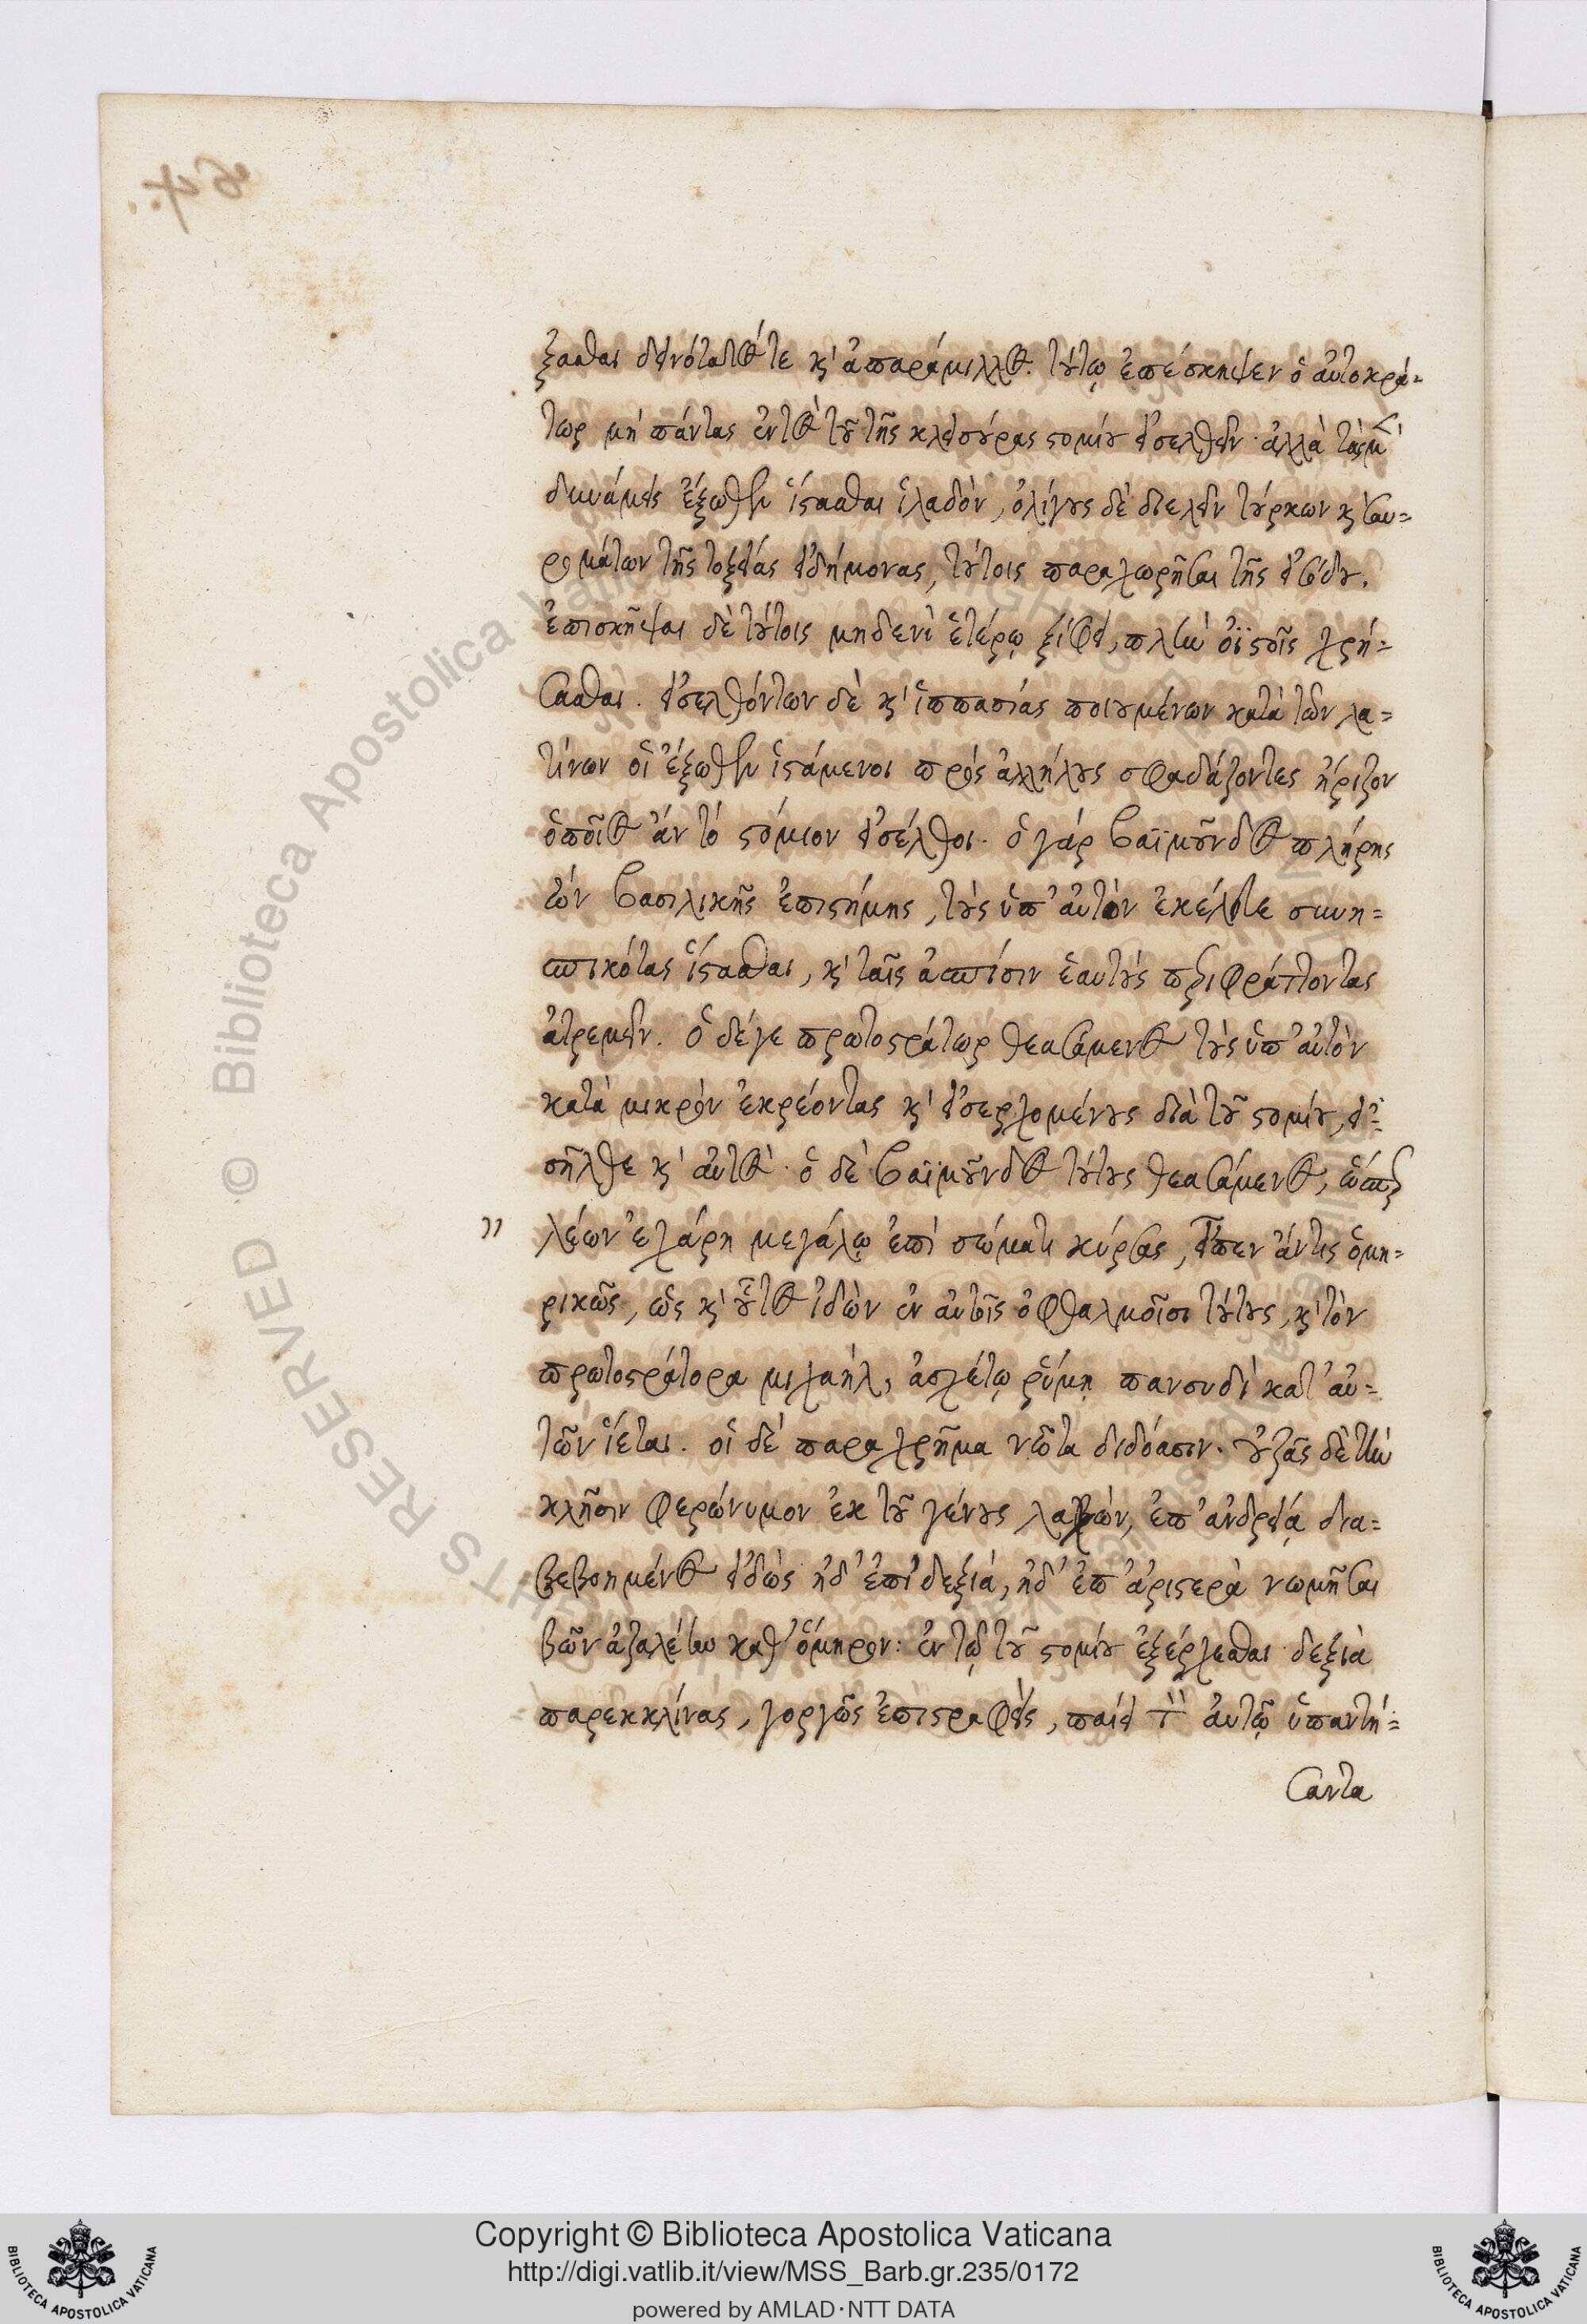 64.
ξασθαι δεινότατός τε κ' ἀπαράμιλλος. τούτῳ ἐπέσκηψεν ὁ αὐτοκρά=
τωρ μὴ πάντας ἐντὸς τοῦ τῆς κλεισούρας στομίου εἰσελθεῖν· ἀλλὰ τὰς μὲν
δυνάμεις ἔξωθεν ἵστασθαι ἰλαδὸν, ὀλίγους δὲ διελεῖν τούρκων κ' σαυ=
ρομάτων τῆς τοξείας εἰδήμονας, τούτοις παραχωρῆσαι τῆς εἰσόδου.
ἐπισκῆψαι δὲ τούτοις μηδενὶ ἑτέρῳ ξίφει, πλὴν ὀϊστοῖς χρή=
σασθαι. εἰσελθόντων δὲ κ' ἱππασίας ποιουμένων κατὰ τῶν λα=
τίνων οἱ ἔξωθεν ἱστάμενοι πρὸς ἀλλήλους σφαδάζοντες ἤριζον
ὁποῖος ἂν τὸ στόμιον εἰσέλθοι. ὁ γάρ βαϊμοῦνδος πλήρης
τῶν βασιλικῆς ἐπιστήμης, τοὺς ὑπ' αὐτὸν ἐκέλευε συνη=
σπικότας ἵστασθαι, κ' ταῖς ἀσπίσιν ἑαυτοὺς περιφράττοντας
ἀτρεμεῖν. ὁ δέγε πρωτοστράτωρ θεασάμενος τοὺς ὑπ' αὐτὸν
κατὰ μικρὸν ἐκρέοντας κ' εἰσερχομένους διὰ τοῦ στομίου, εἰ=
σῆλθε κ' αὐτὸς. ὁ δὲ βαϊμοῦνδος τούτους θεασάμενος, ὥσπερ
" λέων ἐχάρη μεγάλῳ ἐπὶ σώματι κύρσας, εἶπεν ἄντις ὁμη=
ρικῶς, ὣς κ' οὗτος ἰδὼν ἐν αὐτοῖς ὀφθαλμοῖσι τούτους, κ' τὸν
πρωτοστράτορα μιχαὴλ, ἀσχέτῳ ῥύμῃ πανσυδὶ κατ' αὐ=
τῶν ἵεται. οἱ δὲ παραχρῆμα νῶτα διδόασιν. οὐζᾶς δὲ τὴν
κλῆσιν φερώνυμον ἐκ τοῦ γένους λαχὼν, ἐπ' ἀνδρείᾳ δια=
βεβοημένος εἰδὼς ἠδ' ἐπὶ δεξιά, ἠδ' ἐπ' ἀριστερὰ νωμῆσαι
βῶν ἀζαλέην καθ' ὅμηρον: ἐν τῷ τοῦ στομίου ἐξέρχεσθαι δεξιὰ
παρεκκλίνας, γοργῶς ἐπιστραφεὶς, παίει τὸν αὐτῷ ὑπαντή=
σαντα
Copyright © Biblioteca Apostolica Vaticana
http://digi.vatlib.it/view/MSS_Barb.gr.235/0172
powered by AMLAD·NTT DATA